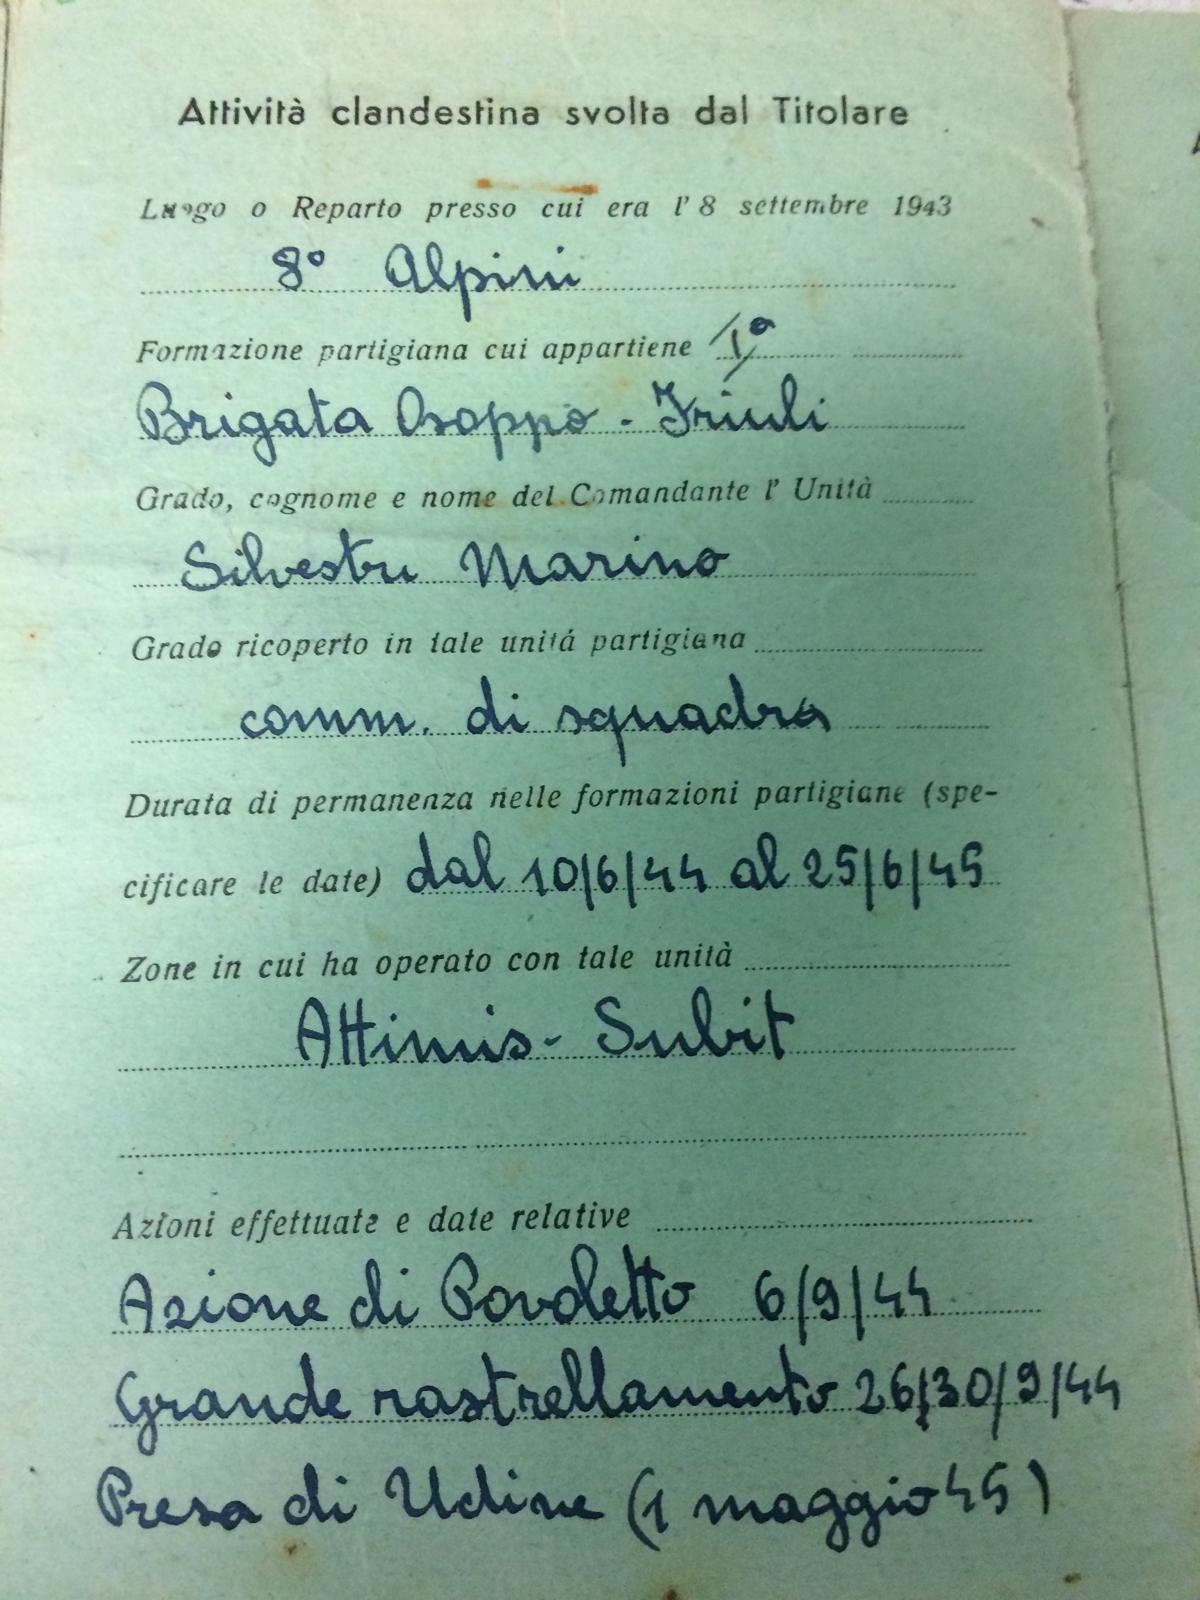 Attività clandestina svolta dal Titolare
Luogo o Reparto presso cui era l' 8 settembre 1943
8° Alpini
Formazione partigiana cui appartiene 1ª
Brigata Osoppo - Friuli
Grado, cognome e nome del Comandante l' Unità
Silvestri Marino
Grado ricoperto in tale unitá partigiana
comm. di squadra
Durata di permanenza nelle formazioni partigiane (spe-
cificare le date) dal 10/6/44 al 25/6/45
Zone in cui ha operato con tale unità
Attimis - Subit
Azioni effettuate e date relative
Azione di Povoletto 6/9/44
Grande rastrellamento 26/30/9/44
Presa di Udine (1 maggio 45)